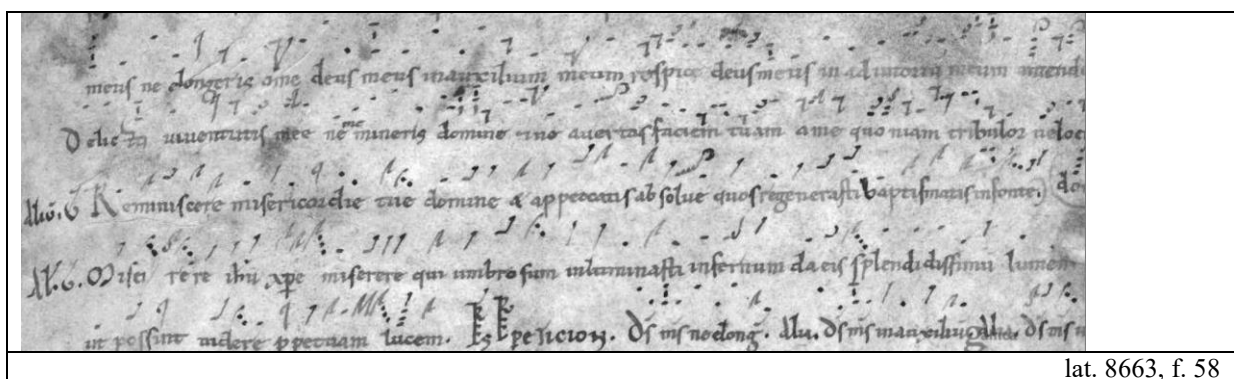 meus ne longeris a me deus meus in auxilium meum respice deus meus in adiutoriũ meum intend
Delicta iuuentutis mee ne me mineris domine & ne auertas faciem tuam a me quoniam tribulor ueloc
Aliũ. 6 Reminiscere misericordie tue domine & a peccatis absolue quos regenerasti baptismatis in fonte. do
Al. 6. Miserere ihũ xp̃e miserere qui umbrosum inluminasti infernum da eis splendidissimũ lumen
ut possint uidere ppetuam lucem. Repeticion. Dś mś ne elong. Aliũ. Dś mś in auxiliũ Aliũ. Dś mś
lat. 8663, f. 58